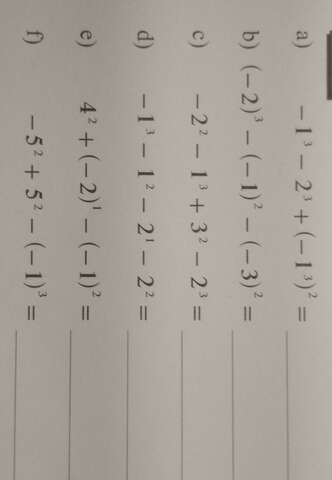 a) −1³ − 2³ + (−1³)² =
b) (−2)³ − (−1)² − (−3)² =
c) −2² − 1³ + 3² − 2³ =
d) −1³ − 1² − 2¹ − 2² =
e) 4² + (−2)¹ − (−1)² =
f) −5² + 5² − (−1)³ =